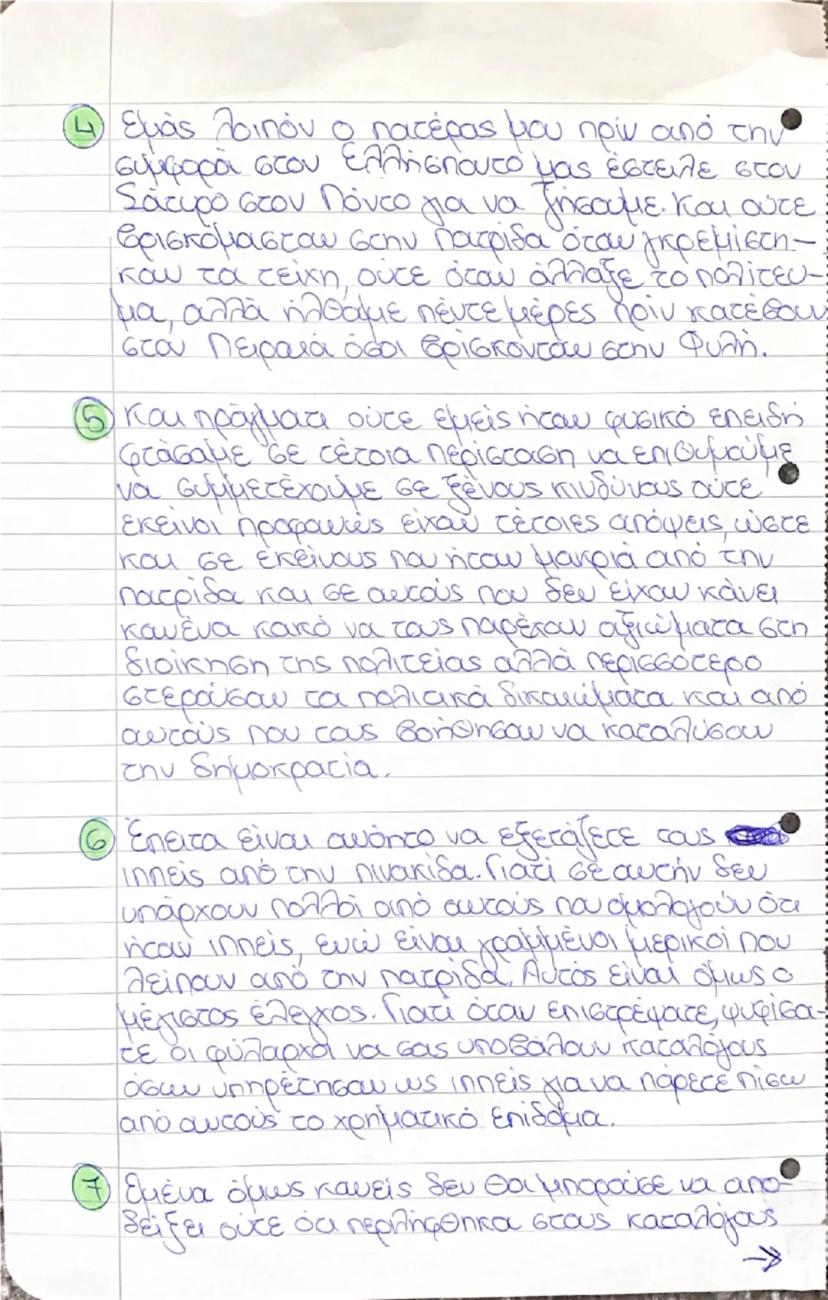 4 Εμάς λοιπόν ο πατέρας μου πρίν από την
συμφορά στον Ελλήσποντο μας έστειλε στον
Σάτυρο στον Πόντο για να ζήσουμε. Και ούτε
βρισκόμασταν στην πατρίδα όταν γκρεμίστη-
καν τα τείχη, ούτε όταν άλλαξε το πολίτευ-
μα, αλλά ήλθαμε πέντε μέρες πρίν κατέβουν
στον Πειραιά όσοι βρίσκονταν στην Φυλή.
5 Και πράγματι ούτε εμείς ήταν φυσικό επειδή
φτάσαμε σε τέτοια περίσταση να επιθυμούμε
να συμμετέχουμε σε ξένους κινδύνους ούτε
εκείνοι προφανώς είχαν τέτοιες απόψεις, ώστε
και σε εκείνους που ήταν μακριά από την
πατρίδα και σε αυτούς που δεν είχαν κάνει
κανένα κακό να τους παρέχουν αξιώματα στη
διοίκηση της πολιτείας αλλά περισσότερο
στερούσαν τα πολιτικά δικαιώματα και από
αυτούς που τους βοήθησαν να καταλύσουν
την δημοκρατία.
6 Έπειτα είναι ανόητο να εξετάζετε τους
ιππείς από την πινακίδα. Γιατί σε αυτήν δεν
υπάρχουν πολλοί από αυτούς που ομολογούν ότι
ήταν ιππείς, ενώ είναι γραμμένοι μερικοί που
λείπουν από την πατρίδα. Αυτός είναι όμως ο
μέγιστος έλεγχος. Γιατί όταν επιστρέψατε, ψυφίσα-
τε οι φύλαρχοι να σας υποβάλουν καταλόγους
όσων υπηρέτησαν ως ιππείς για να πάρετε πίσω
από αυτούς το χρηματικό επίδομα.
7 Εμένα όμως κανείς δεν θα μπορούσε να απο-
δείξει ούτε ότι περιλήφθηκα στους καταλόγους
→